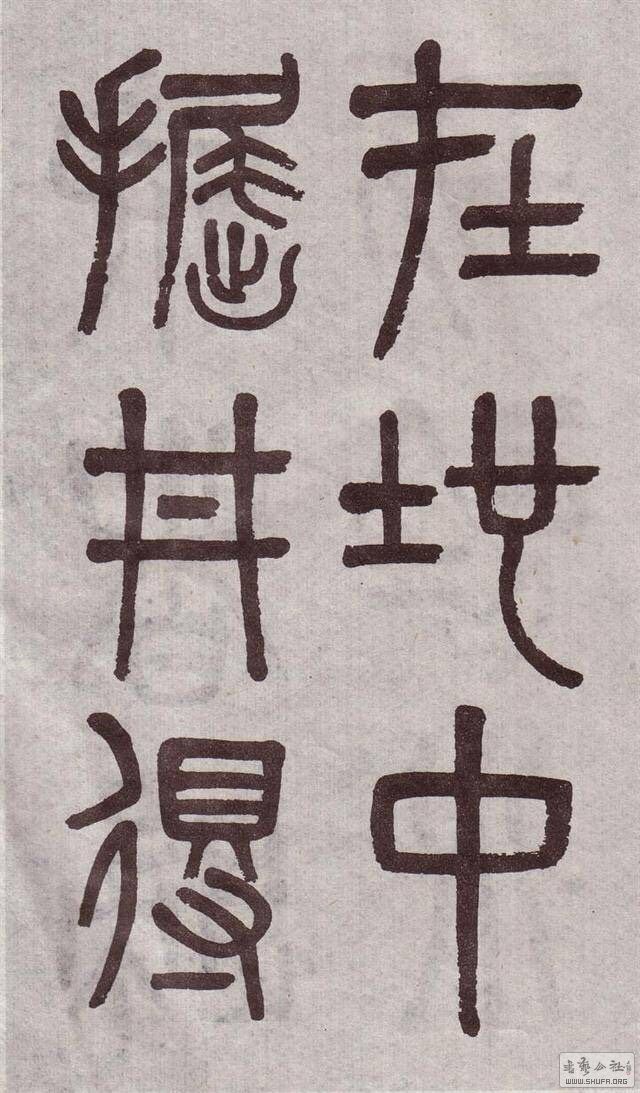 在地中
掘井得
书艺公社
WWW.SHUFA.ORG